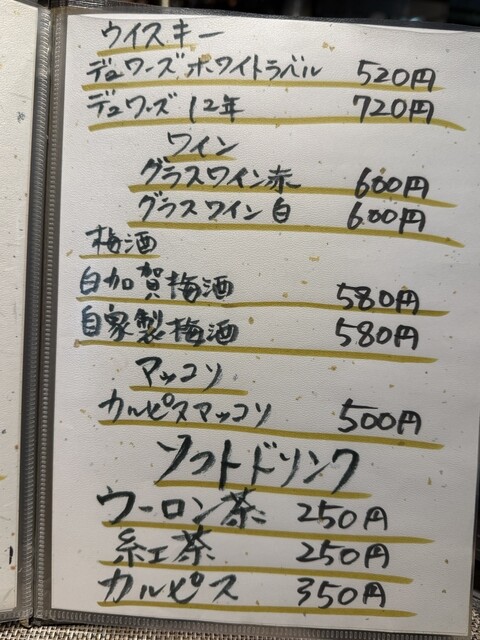 ウイスキー
デュワーズホワイトラベル 520円
デュワーズ 12年 720円
ワイン
グラスワイン赤 600円
グラスワイン白 600円
梅酒
白加賀梅酒 580円
自家製梅酒 580円
マッコソ
カルピスマッコソ 500円
ソフトドリンク
ウーロン茶 250円
紅茶 250円
カルピス 350円